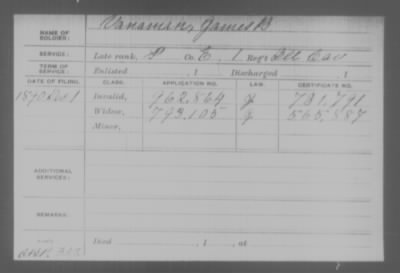 NAME OF SOLDIER: Vanaman, James B
SERVICE: Late rank, P Co. E, 1 Reg't Ill Cav
TERM OF SERVICE: Enlisted , 1 Discharged , 1
DATE OF FILING. CLASS. APPLICATION NO. LAW. CERTIFICATE NO.
1890 Invalid, 962,864 731,791
Widow, 793,105 565,887
Minor,
ADDITIONAL SERVICES:
REMARKS:
Died , 1 , at